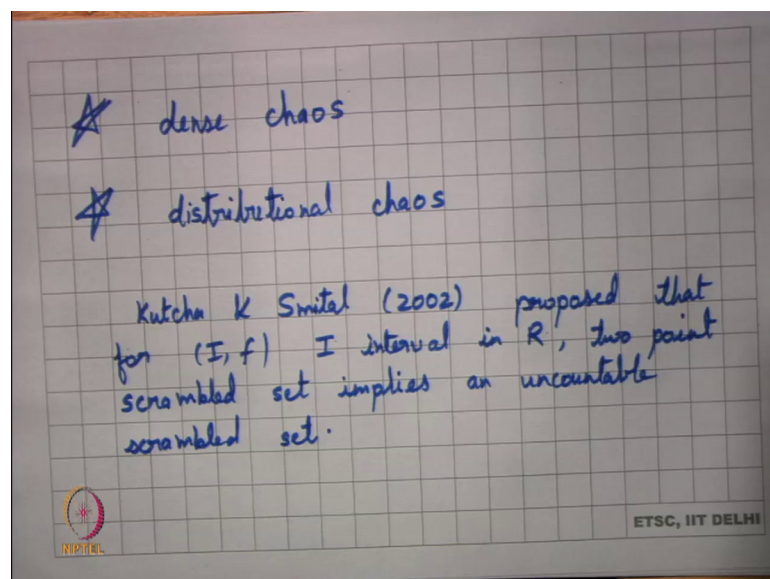 dense chaos
distributional chaos
Kutcha K Smital (2002) proposed that
for (I, f) I interval in R, two point
scrambled set implies an uncountable
scrambled set.
NPTEL
ETSC, IIT DELHI